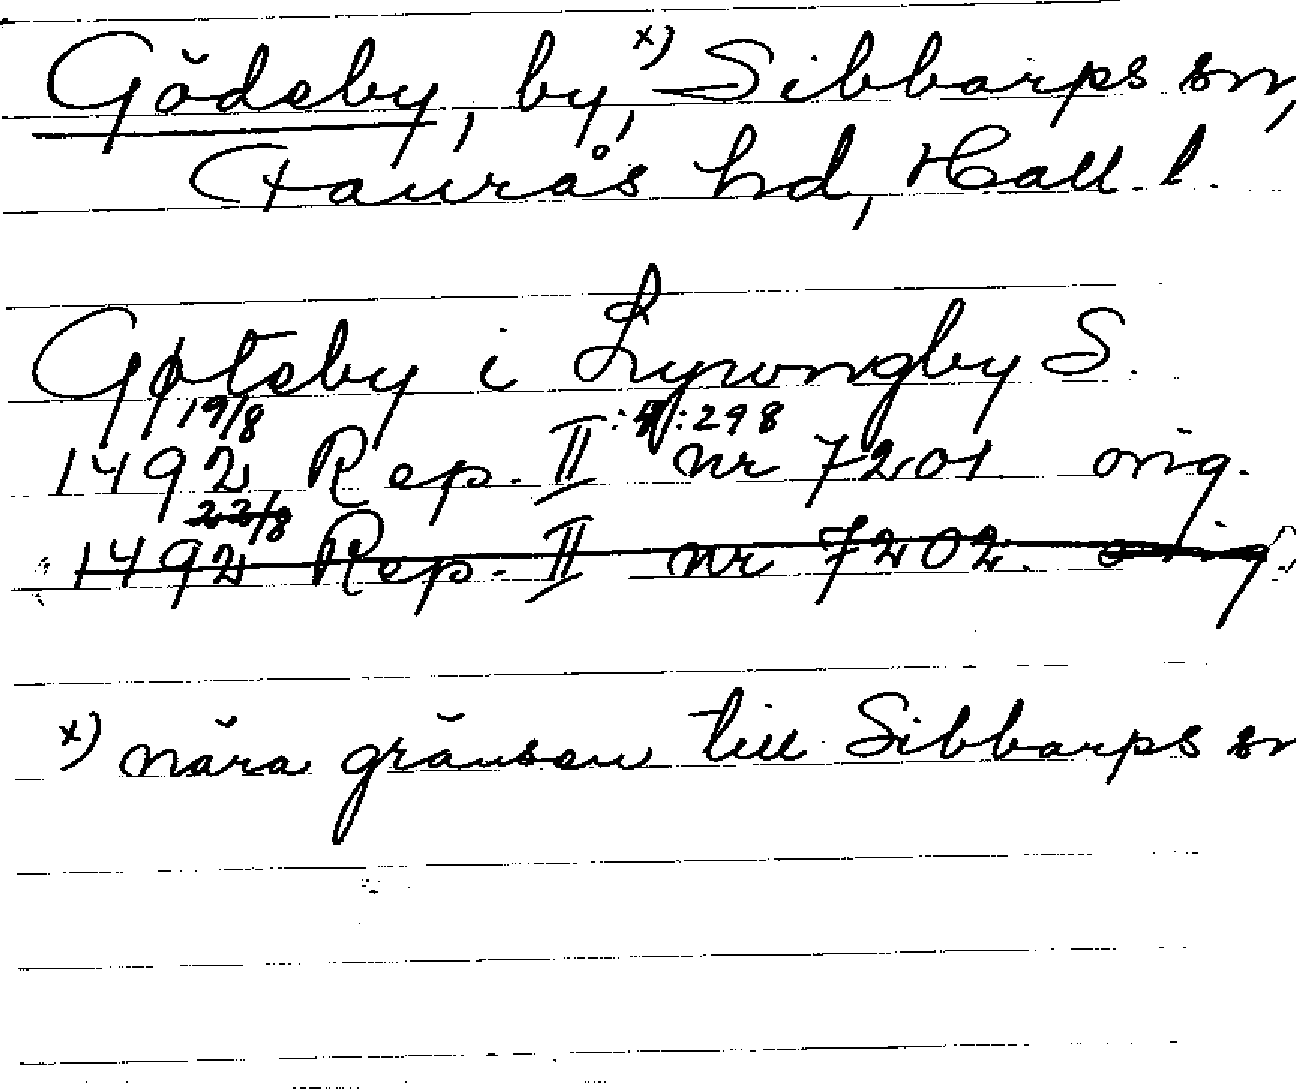 Gödeby, by, x) Sibbarps sn,
Faurås hd, Hall. l.
Gøtsby i Lywngby S.
19/8 :4:298
1492 Rep. II nr 7201 orig.
22/8
1492 Rep. II nr 7202. orig.
x) nära gränsen till Sibbarps sn